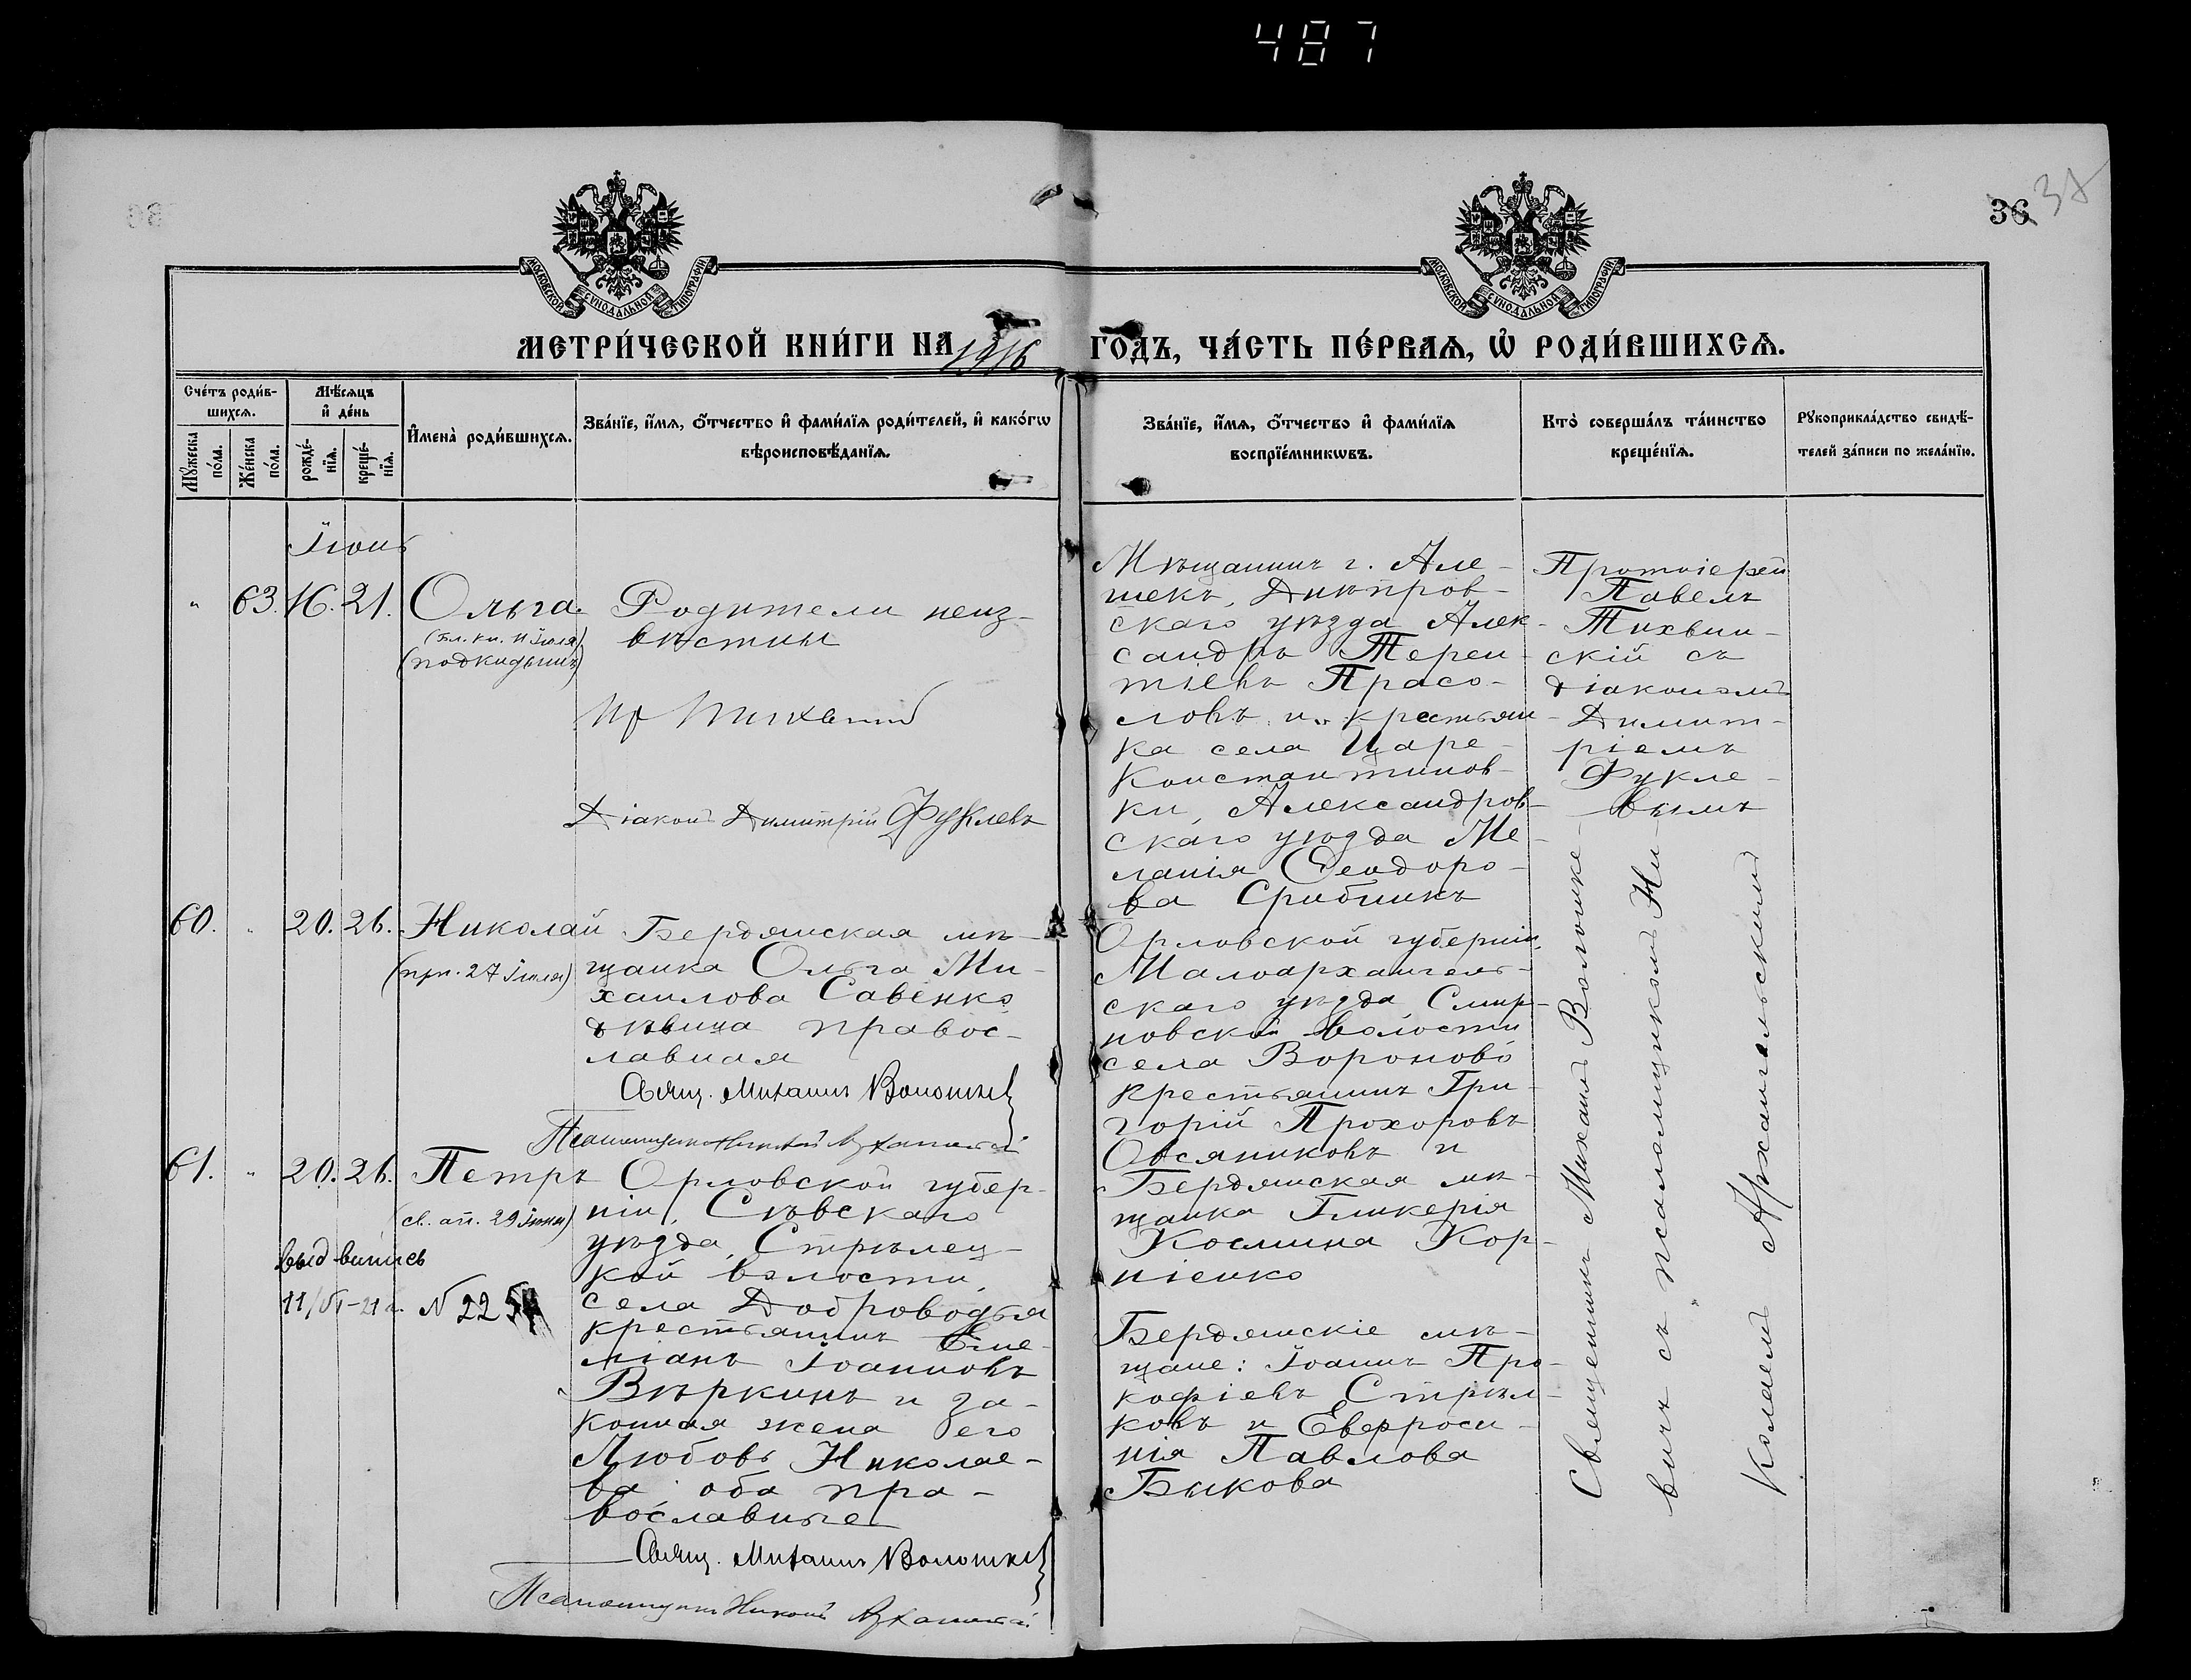 487
36
37
МОСКОВСКОЙ СѴНОДАЛЬНОЙ ТИПОГРАФІИ
МОСКОВСКОЙ СѴНОДАЛЬНОЙ ТИПОГРАФІИ
МЕТРИ́ЧЕСКОЙ КНИ́ГИ НА 1916 ГО́ДЪ, ЧА́СТЬ ПЕ́РВАѦ, Ѡ҆ РОДИ́ВШИХСѦ.
Сче́тъ роди́в-
шихсѧ.
Мꙋ́жеска по́ла.
Же́нска по́ла.
Мѣ́сѧцъ
и҆ де́нь
рожде́-
нїѧ.
креще́-
нїѧ.
И҆мена̀ роди́вшихсѧ.
Зва́нїе, и҆́мѧ, ѻ҆́тчество и҆ фами́лїѧ роди́телей, и҆ како́гѡ
вѣроисповѣ́данїѧ.
Зва́нїе, и҆́мѧ, ѻ҆́тчество и҆ фами́лїѧ
воспрїе́мникѡвъ.
Кто̀ соверша́лъ та́инство
креще́нїѧ.
Рꙋкоприкла́дство свидѣ́-
телей за́писи по жела́нїю.
Іюнь
" 63. 16. 21. Ольга.
(бл. кн. 11 Іюля)
(подкидышъ)
Родители неиз-
вѣстны
Діаконъ Димитрій Фуклевъ
Мѣщанинъ г. Але-
шекъ, Днѣпров-
скаго уѣзда Алек-
сандръ Терен-
тіевъ Прасо-
ловъ и крестьян-
ка села Царе-
Константинов-
ки, Александров-
скаго уѣзда Ме-
ланія Ѳеодоро-
ва Срибникъ
Протоіерей
Павелъ
Тихвин-
скій съ
діакономъ
Димит-
ріемъ
Фукле-
вымъ
60. " 20. 26. Николай
(пр. 27 Іюля)
Бердянская мѣ-
щанка Ольга Ми-
хаилова Савенко
дѣвица правос-
лавная
Свящ. Михаилъ Волошке
Орловской губерніи,
Малоархангель-
скаго уѣзда, Смир-
новской волости
села Вороново
крестьянинъ Гри-
горій Прохоровъ
Овсяниковъ и
Бердянская мѣ-
щанка Гликерія
Космина Кор-
ніенко
61. " 20. 26. Петръ
(св. ап. 29 Іюня)
выд выпись
№ 2254
Орловской губер-
ніи, Сѣвскаго
уѣзда, Стрѣлец-
кой волости,
села Доброводья
крестьянинъ Еме-
ліанъ Іоанновъ
Вѣркинъ и за-
конная жена его
Любовь Николае-
ва оба пра-
вославные
Свящ. Михаилъ Волошке
Бердянскіе мѣ-
щане: Іоаннъ Про-
кофіевъ Стрѣл-
ковъ и Евфроси-
нія Павлова
Быкова
Священникъ Михаилъ Волошке-
вичъ съ псаломщикомъ Ни-
колаемъ Архангельскимъ